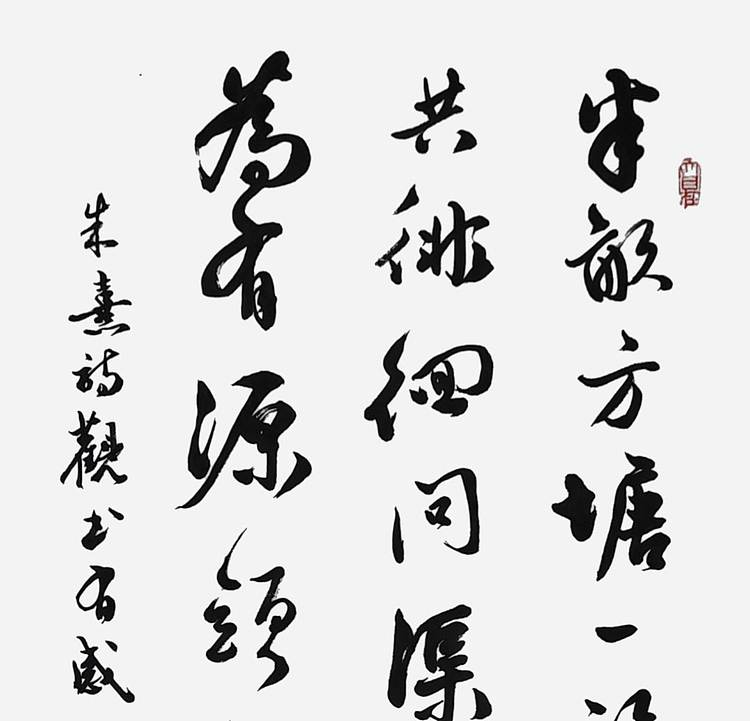 半畝方塘一
共徘徊問渠
為有源頭
朱熹詩觀書有感